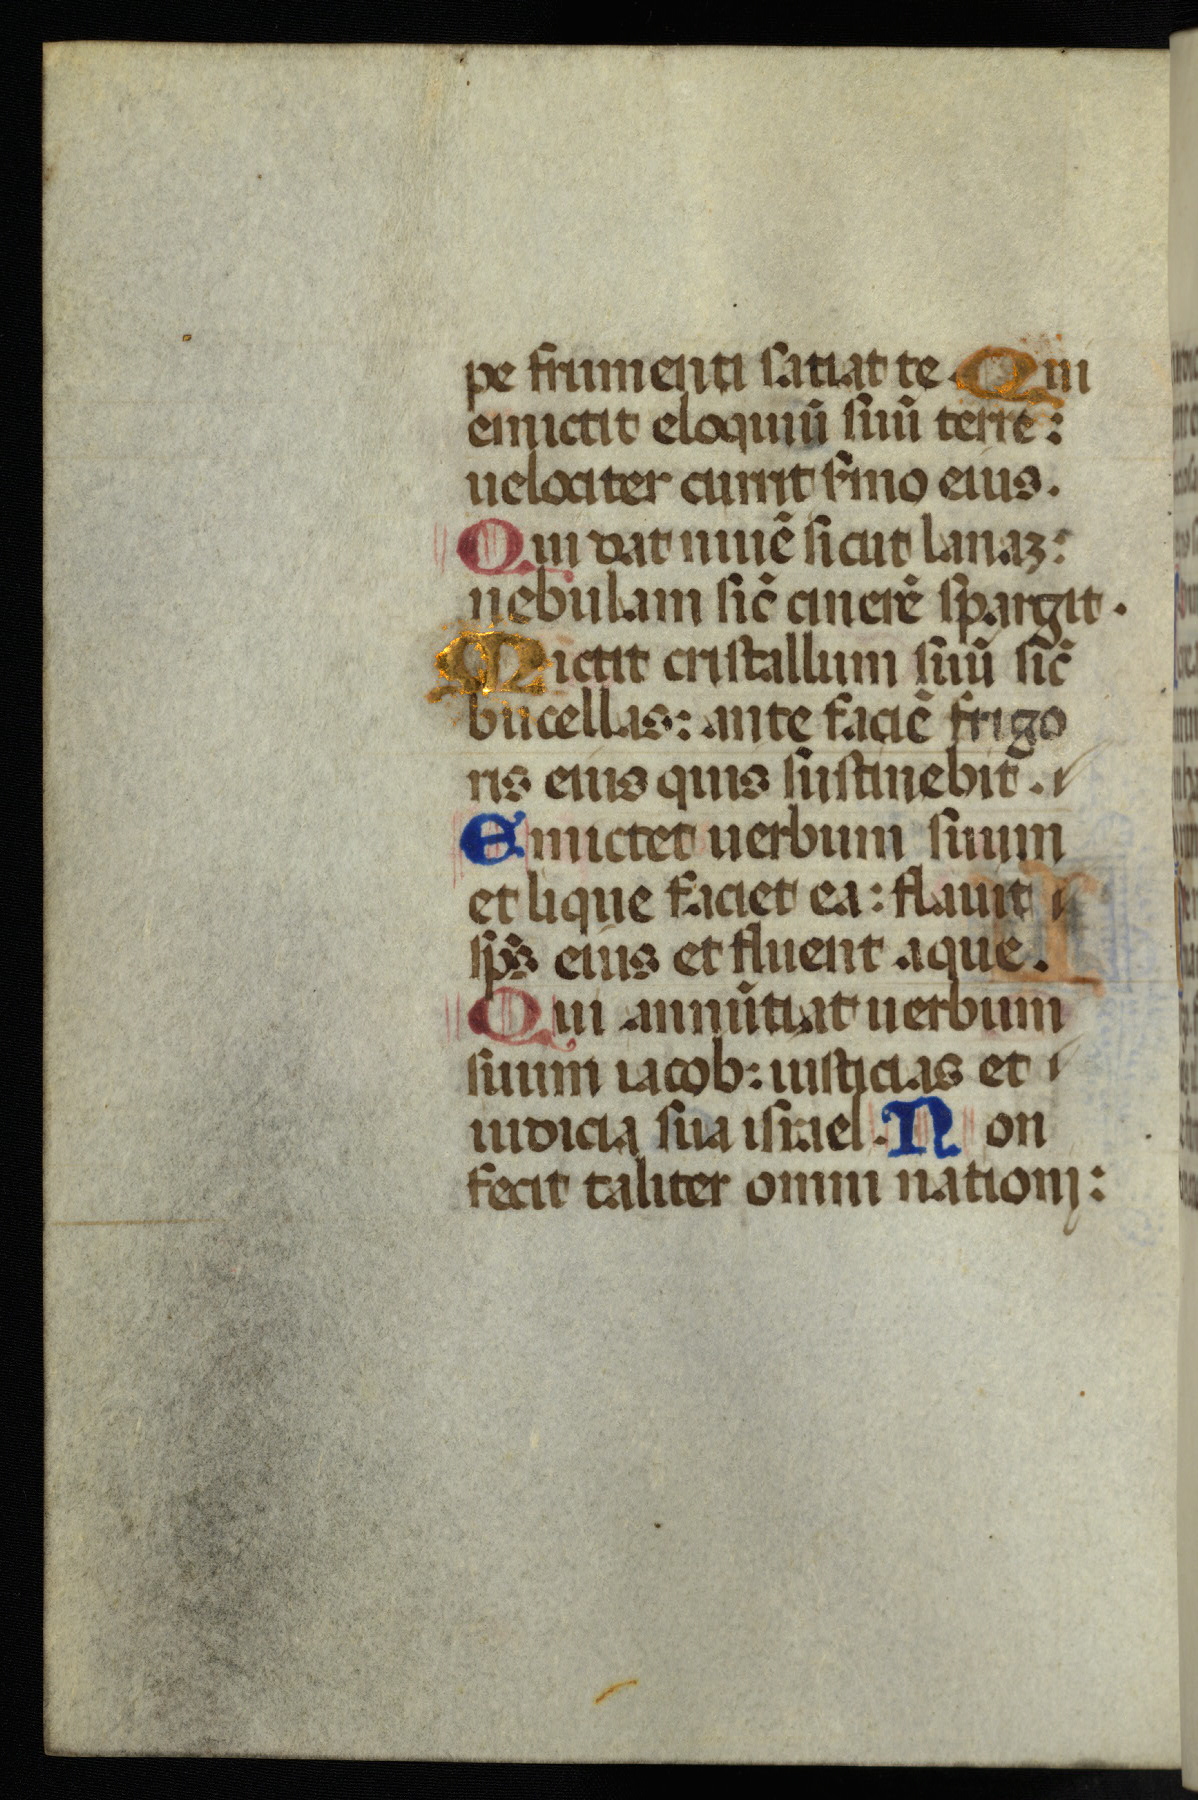 pe frumenti satiat te. Qui
emictit eloquiū suū terre:
uelociter currit s̄mo eius.
Qui dat niuē sicut lanaꝫ:
nebulam sic̄ cinerē spargit.
Mictit cristallum suū sic̄
bucellas: ante faciē frigo
ris eius quis sustinebit̄.
Emictet uerbum suum
et lique faciet ea: flauit
sp̄s eius et fluent aque.
Qui annūtiat uerbum
suum iacob: iusticias et
iudicia sua israel. Non
fecit taliter omni nationj: